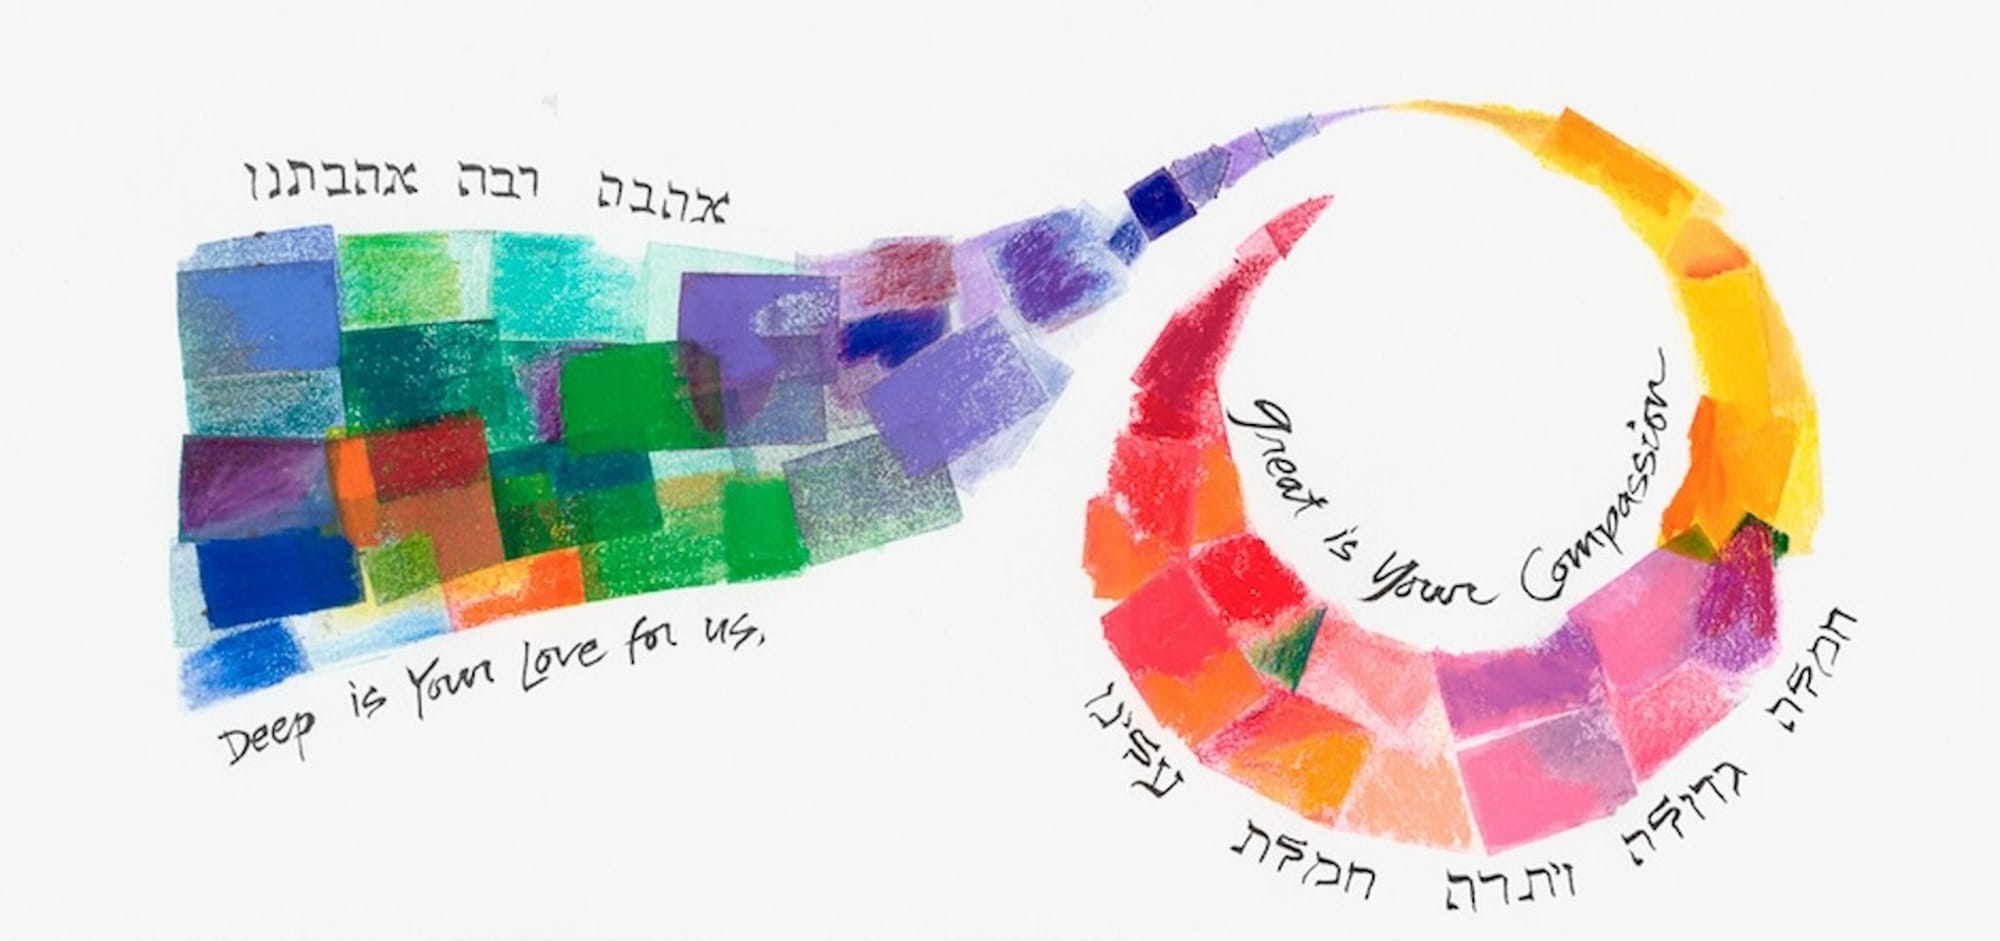 אהבה רבה אהבתנו
Deep is Your Love for us,
great is Your Compassion
חמלה גדולה ויתרה חמלת עלינו